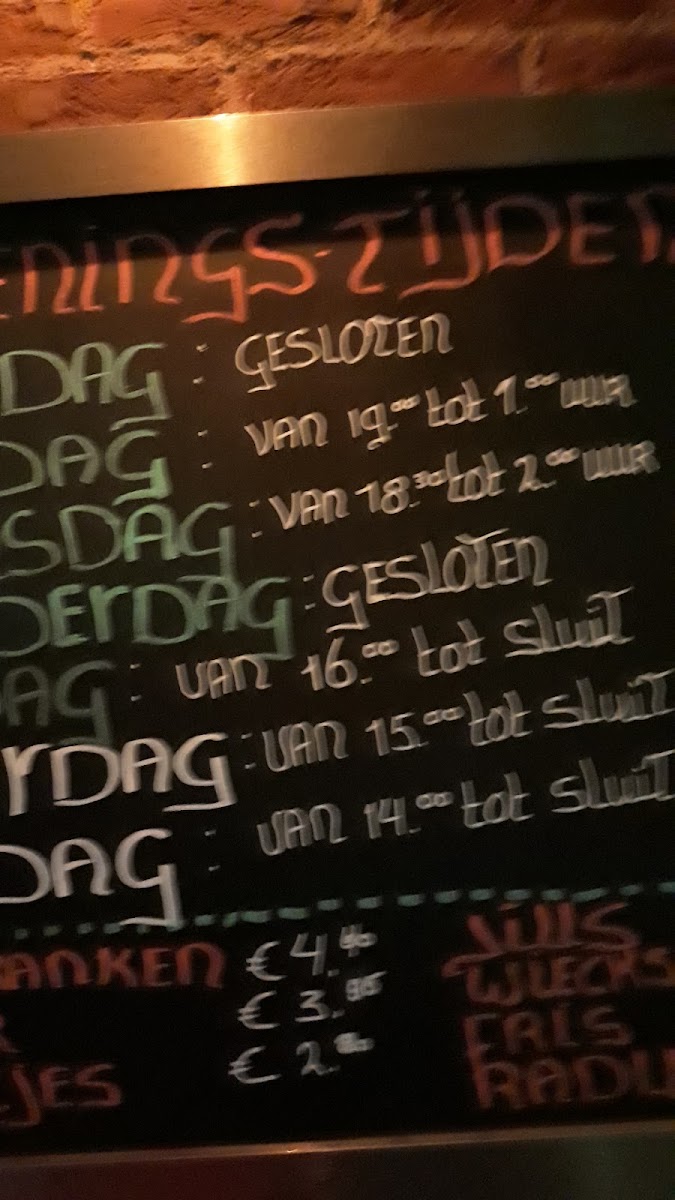 ENINGS-TIJDEN
DAG : GESLOTEN
DAG : VAN 19.00 tot 1.00 UUR
SDAG : VAN 18.30 tot 2.00 UUR
DERDAG : GESLOTEN
DAG : VAN 16.00 tot SLUIT
RDAG : VAN 15.00 tot SLUIT
DAG : VAN 14.00 tot SLUIT
ANKEN € 4. JILLS
€ 3. WIECKS
JES € 2. FRIS
RADL